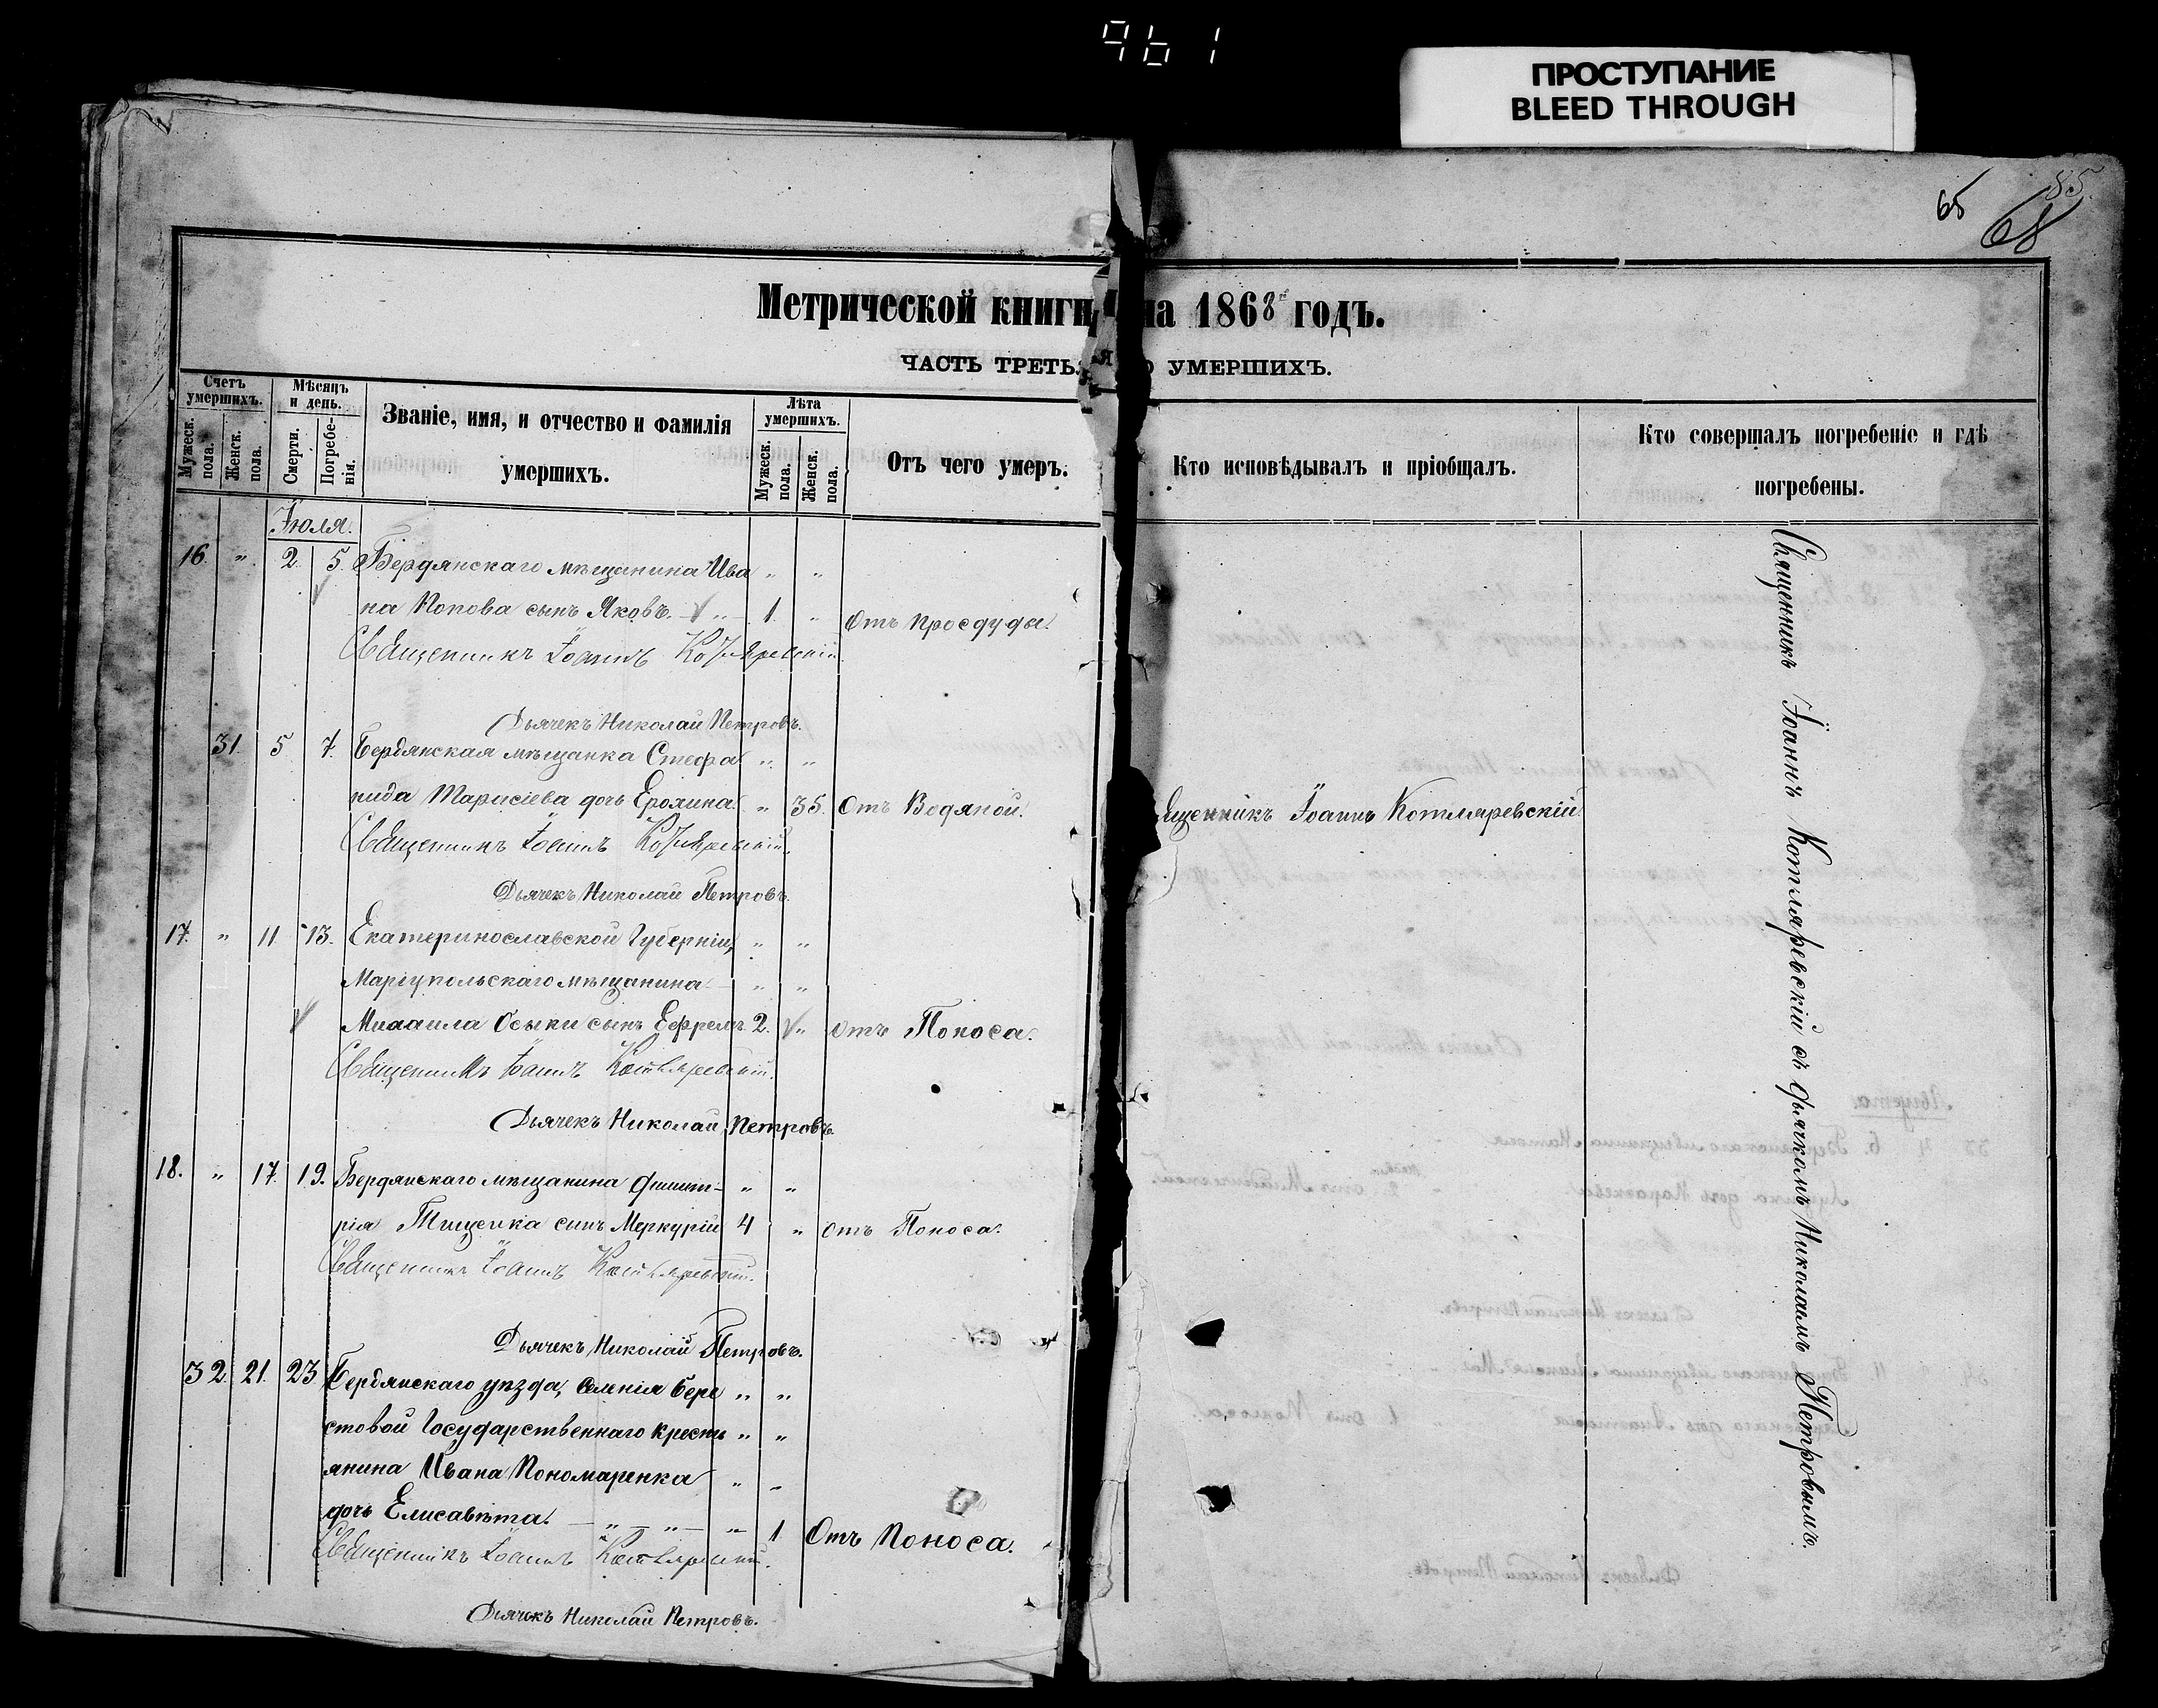 961
ПРОСТУПАНИЕ
BLEED THROUGH
85.
65
68
Метрической книги на 1868 годъ.
ЧАСТЬ ТРЕТЬЯ О УМЕРШИХЪ.
Счетъ умершихъ.
Мужеск. пола.
Женск. пола.
Мѣсяцъ и день.
Смерти.
Погребенія.
Званіе, имя, и отчество и фамилія
умершихъ.
Лѣта умершихъ.
Мужеск. пола.
Женск. пола.
Отъ чего умеръ.
Кто исповѣдывалъ и пріобщалъ.
Кто совершалъ погребеніе и гдѣ
погребены.
Іюля.
16. " 2. 5. Бердянскаго мѣщанина Ива " "
на Попова сынъ Яковъ. 1. " Отъ Просдуды.
Священникъ Іоаннъ Котляревскій.
Дьячекъ Николай Петровъ.
31. 5 7. Бердянская мѣщанка Стефа " "
нида Тарисіева дочь Ерохина. " 35. Отъ Водяной.
Священникъ Іоаннъ Котляревскій.
ященнikъ Іоаннъ Котляревскій.
Дьячекъ Николай Петровъ.
17. " 11 13. Екатеринославской Губерніи, " "
Маріупольскаго мѣщанина " "
Михаила Осыки сынъ Ефремъ. 2. " отъ Поноса.
Священникъ Іоаннъ Котляревскій.
Дьячекъ Николай Петровъ.
18. " 17. 19. Бердянскаго мѣщанина Димит- " "
рія Тищенка сынъ Меркурій 4 " отъ Поноса.
Священникъ Іоаннъ Котляревскій.
Дьячекъ Николай Петровъ.
32. 21. 23 Бердянскаго уѣзда, Селенія Бере " "
стовой Государственнаго крестъ " "
янина Ивана Пономаренка " "
дочь Елисавѣта. " " " 1. Отъ Поноса.
Священникъ Іоаннъ Котляревскій.
Дьячекъ Николай Петровъ.
Священникъ Іоаннъ Котляревскій съ дьячкомъ Николаемъ Петровымъ.